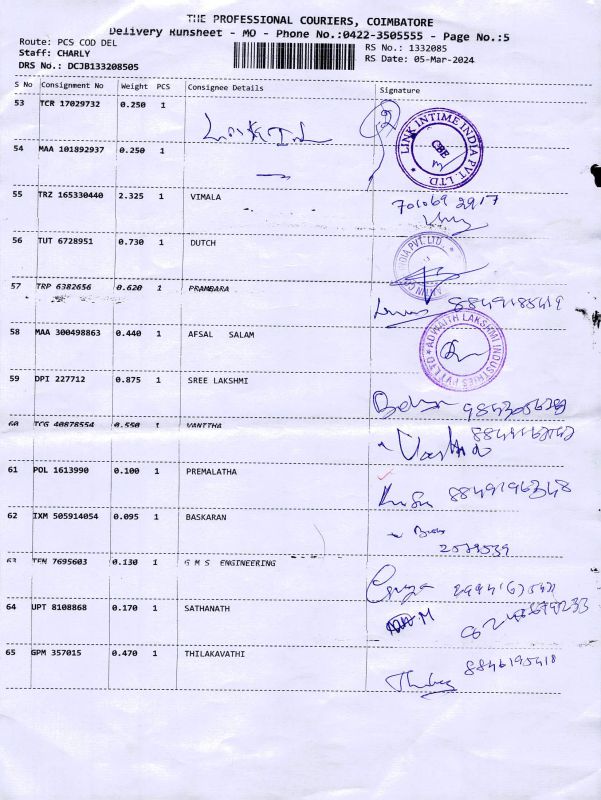 THE PROFESSIONAL COURIERS, COIMBATORE
Delivery Runsheet - MO - Phone No.:0422-3505555 - Page No.:5
Route: PCS COD DEL
RS No.: 1332085
Staff: CHARLY
RS Date: 05-Mar-2024
DRS No.: DCJB133208505
S No Consignment No Weight PCS Consignee Details Signature
53 TCR 17029732 0.250 1
LINK INTIME INDIA PVT. LTD.
CBE
54 MAA 101892937 0.250 1
55 TRZ 165330440 2.325 1 VIMALA
56 TUT 6728951 0.730 1 DUTCH
57 TRP 6382656 0.620 1 PRAMBARA
58 MAA 300498863 0.440 1 AFSAL SALAM
ADWAITH LAKSHMI INDUSTRIES PVT LTD
59 DPI 227712 0.875 1 SREE LAKSHMI
60 TCG 40878554 0.550 1 VANITHA
61 POL 1613990 0.100 1 PREMALATHA
62 IXM 505914054 0.095 1 BASKARAN
2589539
63 TEN 7695603 0.130 1 G M S ENGINEERING
64 UPT 8108868 0.170 1 SATHANATH
65 GPM 357015 0.470 1 THILAKAVATHI
8846195418